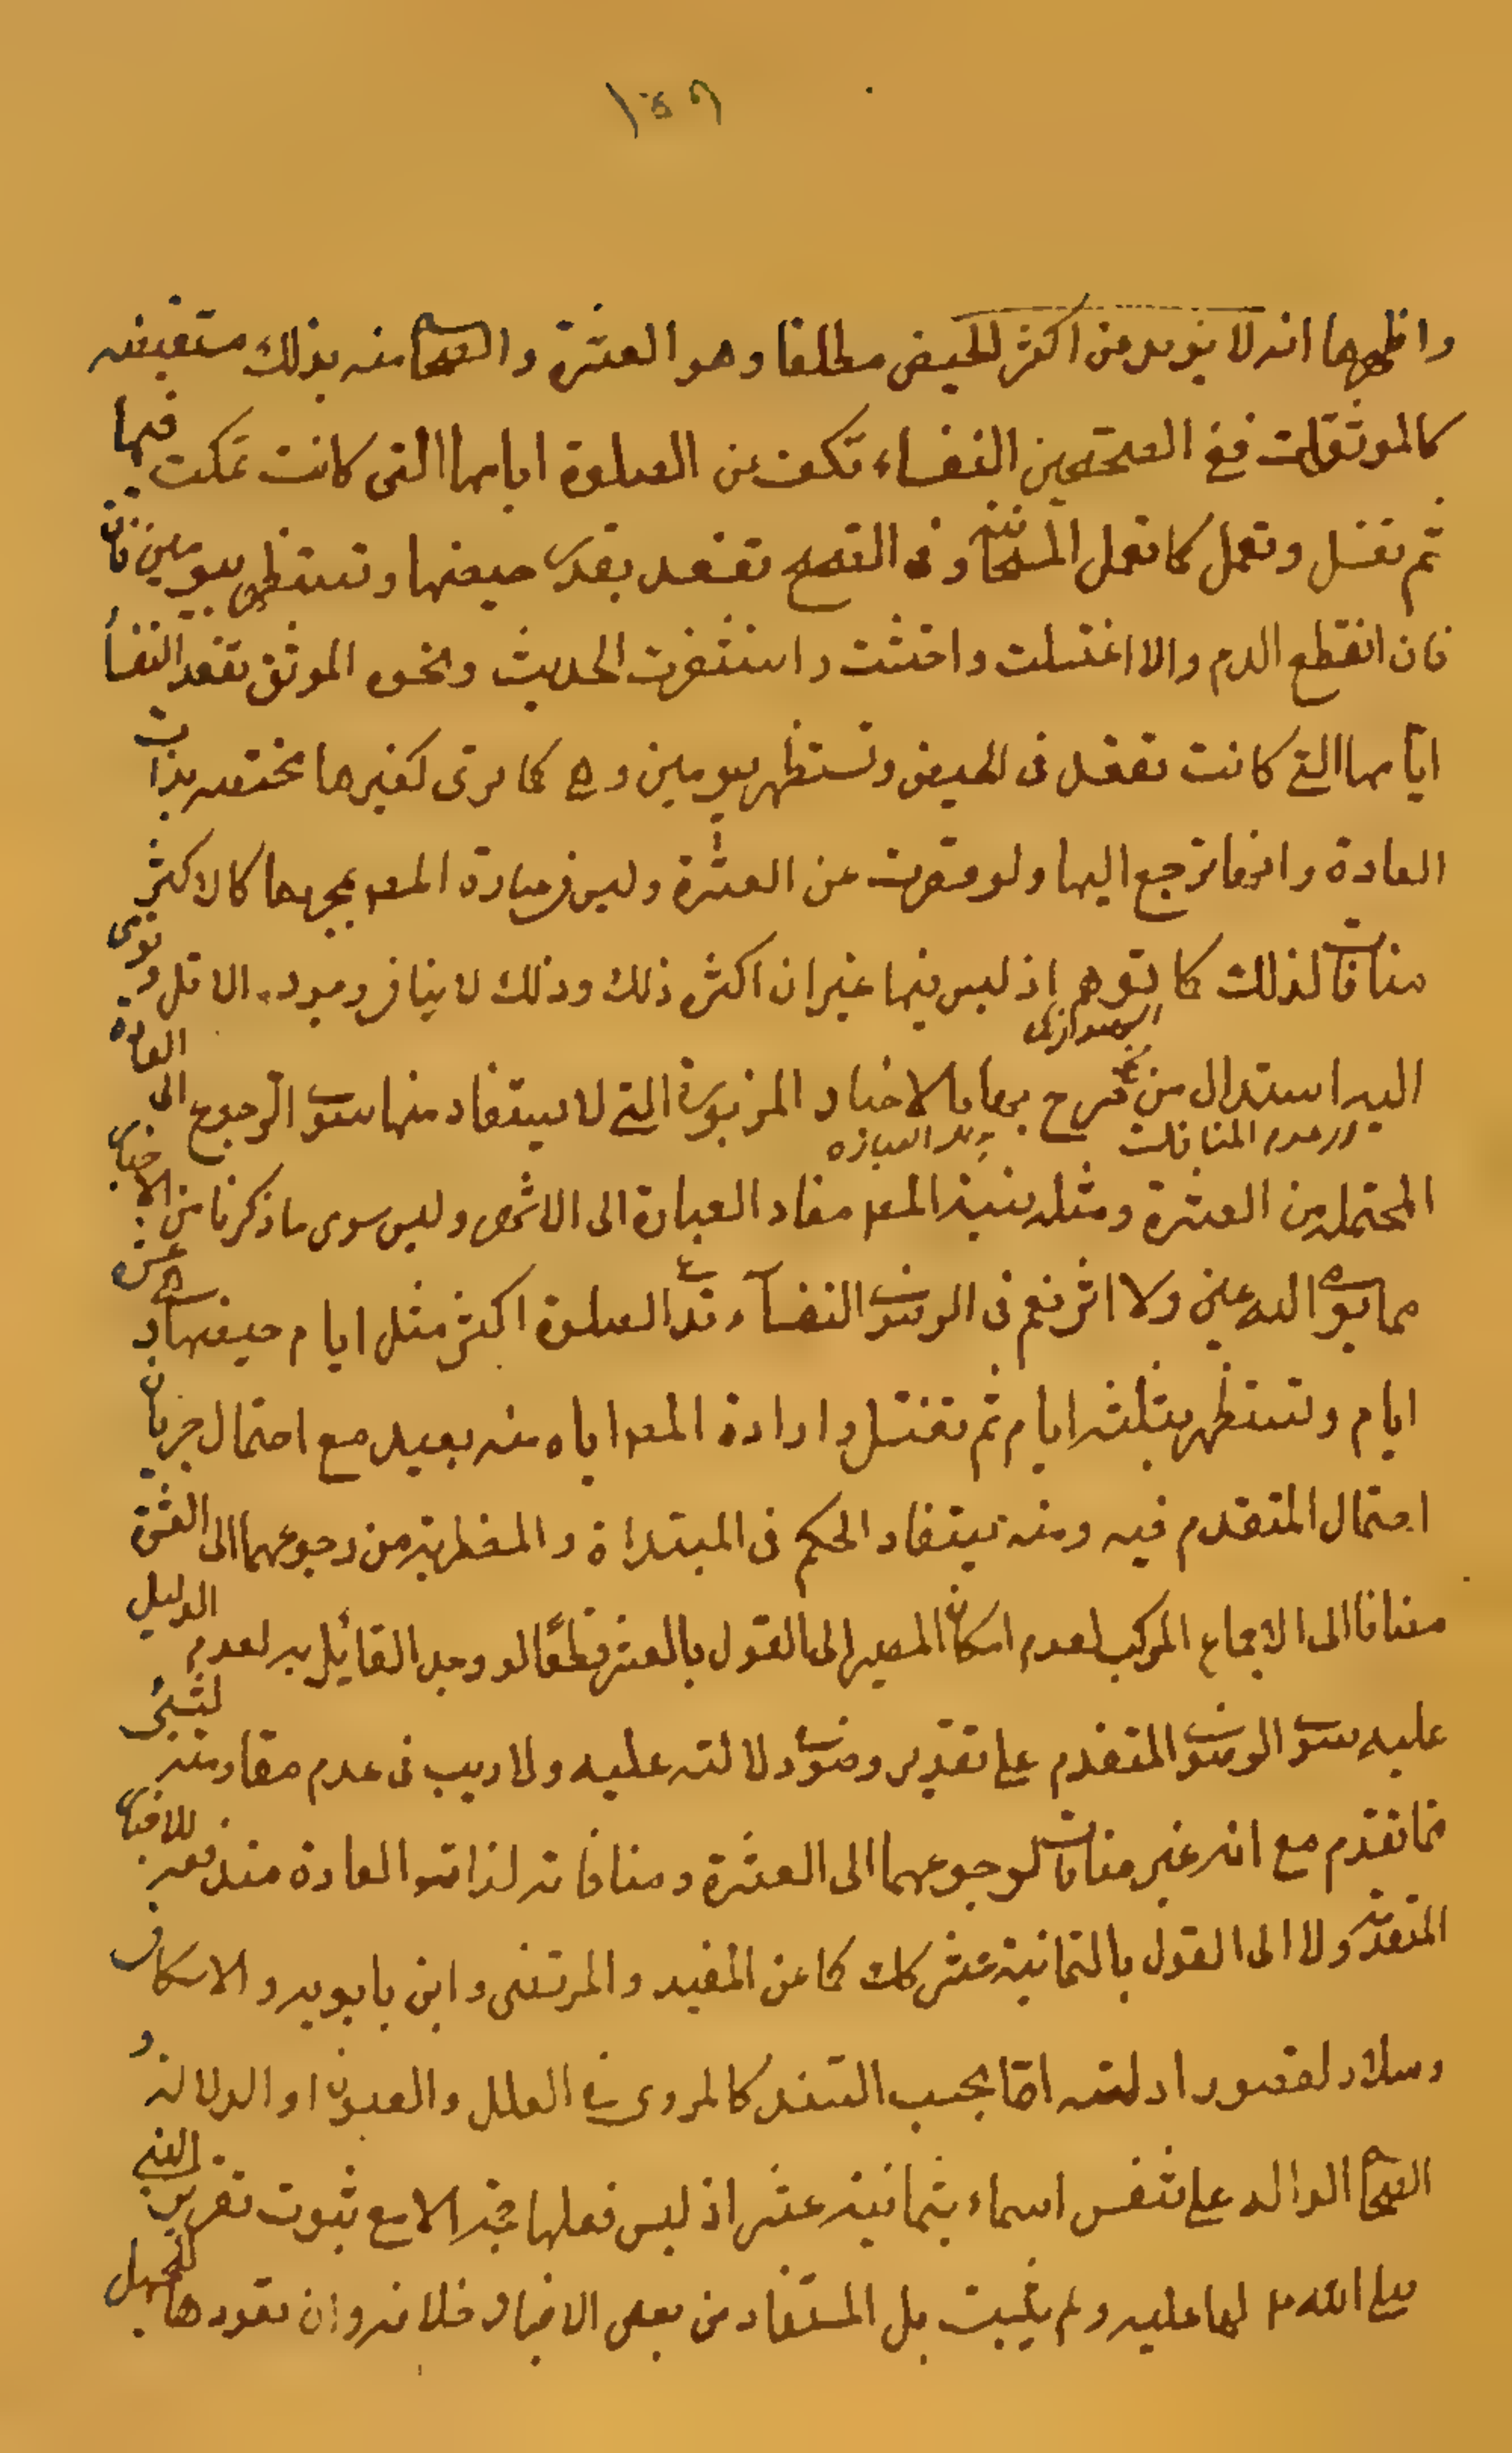 ١٤٩
واظهرها انه لا يزيد عن اكثر الحيض مطلقا وهو العشرة والصحاح منه بذلك مستفيضه
كالموثقات ففى الصحيحين النفساء تكف عن الصلوة ايامها التى كانت تمكث فيها
ثم تغتسل وتعمل كما تعمل المستحاضة وفى الصحيح تقعد بقدر حيضها وتستظهر بيومين فان
فان انقطع الدم والا اغتسلت واحتشت واستثفرت الحديث ونحوه الموثق تقعد النفسا
ايامها التى كانت تقعد فى الحيض وتستظهر بيومين وهى كما ترى كغيرها مختصه بذات
العادة وانها ترجع اليها ولو قصرت عن العشرة وليس فى عبارة المصر بجهرها كالاكثر
منافات لذلك كما توهم اذ ليس فيها غير ان اكثره ذلك وذلك لا ينافى وجود الاقل و
اليه استدلال من صرح بها بالاخبار المزبورة التى لا يستفاد منها سوى الرجوع الى العادة
المحتمله من العشرة ومثله ينبه المصر مفاد العبارة الى الاشهر وليس سوى ما ذكرنا من الاخبار
مما سواه عين ولا اثر نعم فى الرضوى النفساء تدع الصلوة اكثر مثل ايام حيضها وهى عشرة
ايام وتستظهر بثلثه ايام ثم تغتسل وارادة المصر اياه منه بعيد مع احتمال جريان
احتمال المتقدم فيه ومنه يستفاد الحكم فى المبتداة والمضطربة من رجوعهما الى العشرة
مضافا الى الاجماع المركب لعدم امكان المصير الى القول بالعشر قطعًا لو وجد القائل به لعدم الدليل
عليه سوى الرضوى المتقدم على تقدير وضوح دلالته عليه ولا ريب فى عدم مقاومته لشئ
مما تقدم مع انه غير منافات لرجوعهما الى العشرة ومنافاته لذات العادة مندفعه للاخبار
المتقدمة ولا الى القول بالثمانية عشر كك كما عن المفيد والمرتضى وابن بابويه والاسكافى
وسلار لقصور ادلته اما بحسب السند كالمروى فى العلل والعيون او الدلالة و
الصحاح الداله على تنفس اسماء بثمانية عشر اذ ليس فعلها حجه الا مع ثبوت تقرير النبى
صلى الله عليه لها عليه ولم يثبت بل المستفاد من بعض الاخبار خلافه وان تقودها للجهل